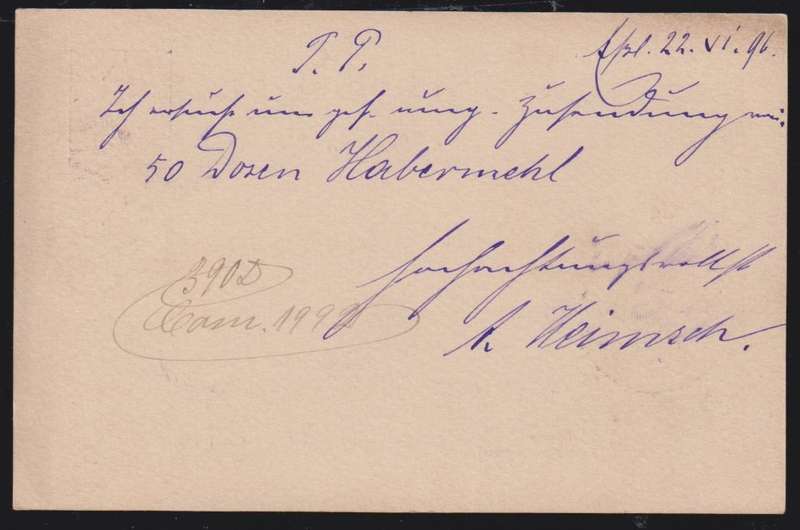 P. P.
22. VI. 96.
Ich ersuche um gef. umg. Zusendung von
50 Dosen Habermehl
hochachtungsvollst
A. Heimsch.
390
Com. 1999